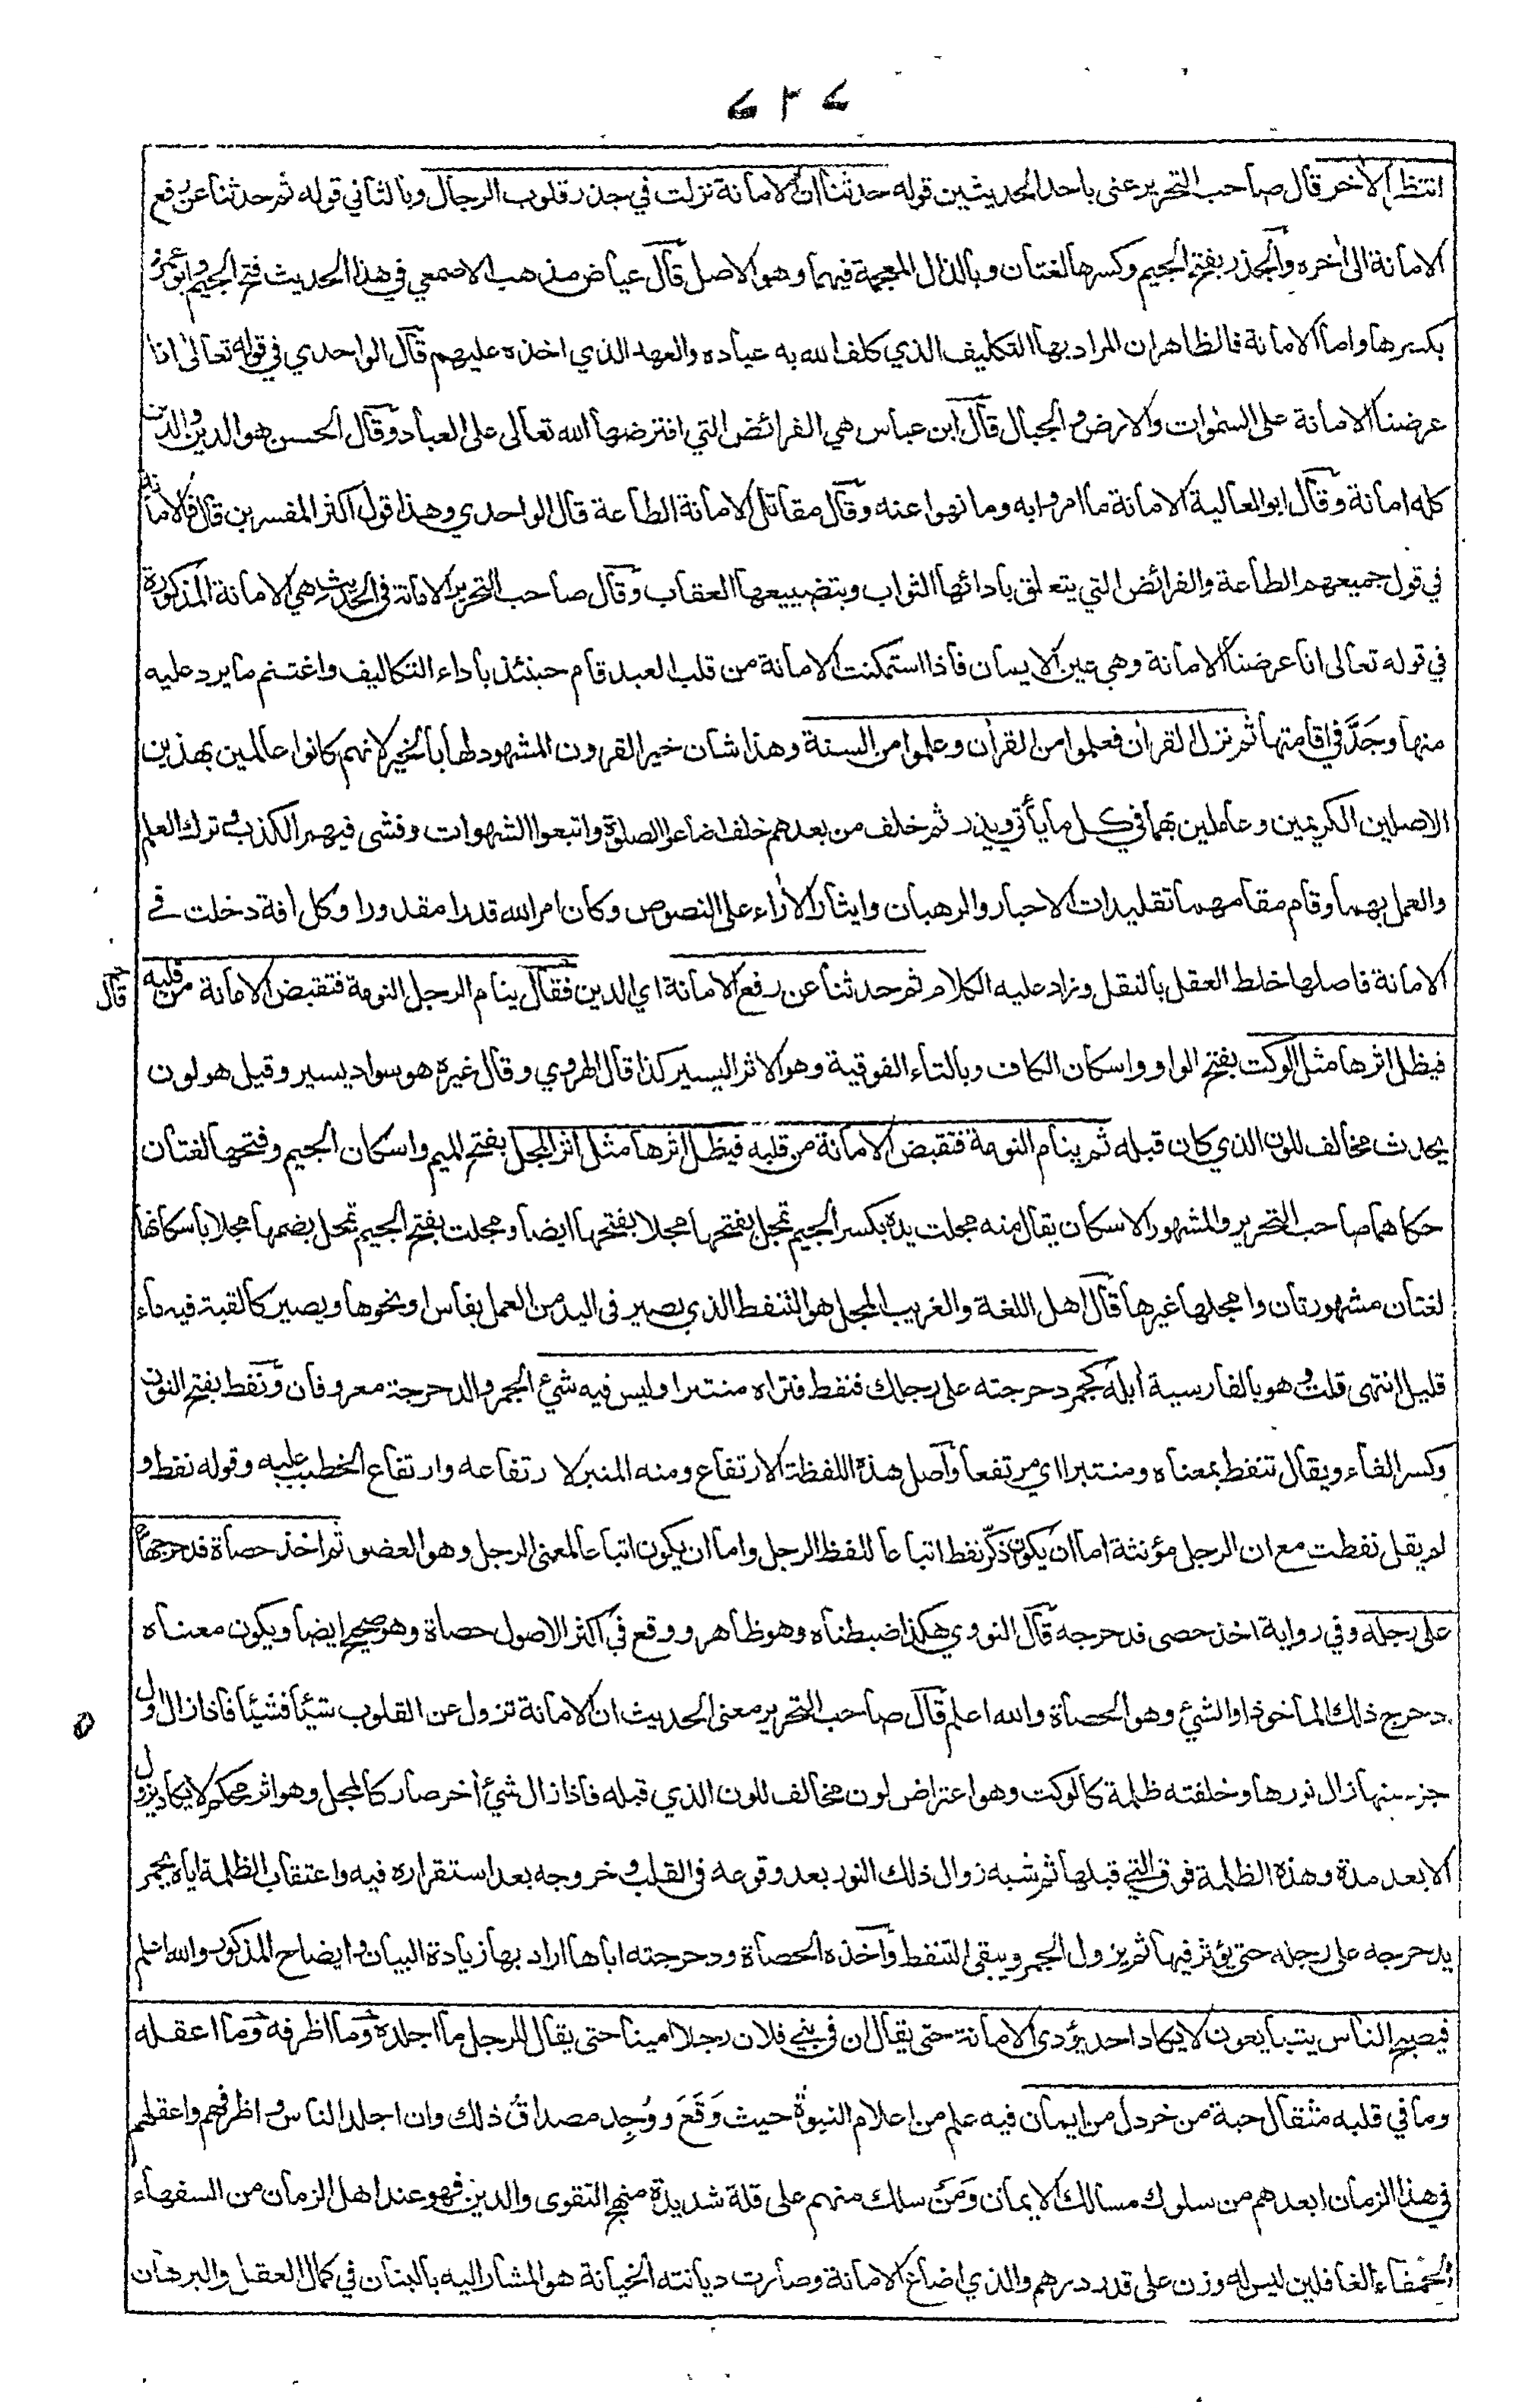 انتظر الأخر قال صاحب التحرير عنى باحد الحديثين قوله حدثنا ان الامانة نزلت في جذر قلوب الرجال وبالثاني قوله ثم حدثنا عن رفع
الامانة الى أخره والجذر بفتح الجيم وكسرها لغتان وبالذال المعجمة فيهما وهو الاصل قال عياض مذهب الاصمعي في هذا الحديث فتح الجيم وابو عمرو
بكسرها واما الامانة فالظاهر ان المراد بها التكليف الذي كلف الله به عباده والعهد الذي اخذه عليهم قال الواحدي في قوله تعالى انا
عرضنا الامانة على السموات والارض والجبال قال ابن عباس هي الفرائض التي افترضها الله تعالى على العباد وقال الحسن هو الدين والدين
كله امانة وقال ابو العالية الامانة ما امروا به وما نهوا عنه وقال مقاتل الامانة الطاعة قال الواحدي وهذا قول اكثر المفسرين قال فالامانة
في قول جميعهم الطاعة والفرائض التي يتعلق بادائها الثواب وبتضييعها العقاب وقال صاحب التحرير الامانة في الحديث هي الامانة المذكورة
في قوله تعالى انا عرضنا الامانة وهي عين الايمان فاذا استمكنت الامانة من قلب العبد قام حينئذ باداء التكاليف واغتنم ما يرد عليه
منها وجَدَّ في اقامتها ثم نزل القران فعلموا من القرأن وعلموا من السنة وهذا شان خير القرون المشهود لها بالخير لانهم كانوا عالمين بهذين
الاصلين الكريمين وعاملين بهما في كل ما يأتي ويذر ثم خلف من بعدهم خلف اضاعوا الصلوة واتبعوا الشهوات وفشى فيهم الكذب وترك العلم
والعمل بهما وقام مقامهما تقليدات الاحبار والرهبان وايثار الأراء على النصوص وكان امر الله قدرا مقدورا وكل افة دخلت في
الامانة فاصلها خلط العقل بالنقل وزاد عليه الكلام ثم حدثنا عن رفع الامانة اي الدين فقال ينام الرجل النومة فتقبض الامانة من قلبه
قال
فيظل اثرها مثل الوكت بفتح الواو واسكان الكاف وبالتاء الفوقية وهو الاثر اليسير كذا قال الهروي وقال غيره هو سواد يسير وقيل هو لون
يحدث مخالف للون الذي كان قبله ثم ينام النومة فتقبض الامانة من قلبه فيظل اثرها مثل اثر المجل بفتح الميم واسكان الجيم وفتحها لغتان
حكاهما صاحب التحرير والمشهور الاسكان يقال منه مجلت يده بكسر الجيم تمجل بفتحها مجلا بفتحها ايضا ومجلت بفتح الجيم تمجل بضمها مجلا باسكانها
لغتان مشهورتان وامجلها غيرها قال اهل اللغة والغريب المجل هو التنفط الذي يصير في اليد من العمل بفاس او نحوها ويصير كالقبة فيه ماء
قليل انتهى قلت وهو بالفارسية أبله كجمر دحرجته على رجلك فنفط فتراه منتبرا وليس فيه شئ الجمر والدحرجة معروفان ونفط بفتح النون
وكسر الفاء ويقال تنفط بمعناه ومنتبرا اي مرتفعا وأصل هذه اللفظة الارتفاع ومنه المنبر لارتفاعه وارتفاع الخطيب عليه وقوله نفط و
لم يقل نفطت مع ان الرجل مؤنثة اما ان يكون ذكّر نفط اتباعا للفظ الرجل واما ان يكون اتباعا لمعنى الرجل وهو العضو ثم اخذ حصاة فدحرجها
على رجله وفي رواية اخذ حصى فدحرجه قال النووي هكذا ضبطناه وهو ظاهر ووقع في اكثر الاصول حصاة وهو صحيح ايضا ويكون معناه
دحرج ذلك الماخوذ او الشئ وهو الحصاة والله اعلم قال صاحب التحرير معنى الحديث ان الامانة تزول عن القلوب شيئا فشيئا فاذا زال اول
جزء منها زال نورها وخلفته ظلمة كالوكت وهو اعتراض لون مخالف للون الذي قبله فاذا زال شئ أخر صار كالمجل وهو اثر محكم لا يكاد يزول
الا بعد مدة وهذه الظلمة فوق التي قبلها ثم شبه زوال ذلك النور بعد وقوعه في القلب وخروجه بعد استقراره فيه واعتقاب الظلمة اياه بجمر
يدحرجه على رجله حتى يؤثر فيها ثم يزول الجمر ويبقى التنفط وأخذه الحصاة ودحرجته اياها اراد بها زيادة البيان وايضاح المذكور والله اعلم
فيصبح الناس يتبايعون لا يكاد احد يؤدى الامانة حتى يقال ان في بني فلان رجلا امينا حتى يقال للرجل ما اجلده وما اظرفه وما اعقله
وما في قلبه مثقال حبة من خردل من ايمان فيه علم من اعلام النبوة حيث وَقَعَ ووُجِد مصداقُ ذلك وان اجلد الناس واظرفهم واعقلهم
في هذا الزمان ابعدهم من سلوك مسالك الايمان وَمَن سلك منهم على قلة شديدة منهج التقوى والدين فهو عند اهل الزمان من السفهاء
الحمقاء الغافلين ليس له وزن على قدر درهم والذي اضاع الامانة وصارت ديانته الخيانة هو المشار اليه بالبنان في كمال العقل والبرهان